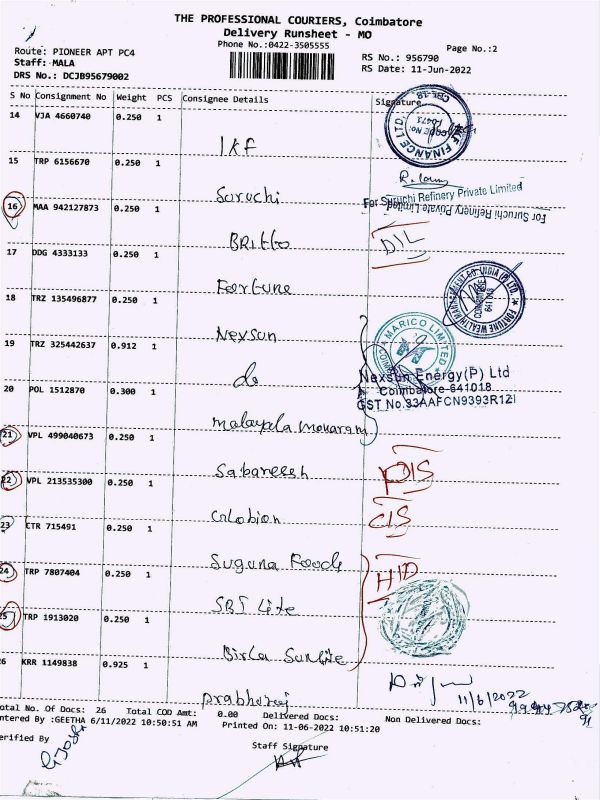 THE PROFESSIONAL COURIERS, Coimbatore
Delivery Runsheet - MO
Phone No.:0422-3505555
Page No.:2
Route: PIONEER APT PC4
Staff: MALA
DRS No.: DCJB95679002
RS No.: 956790
RS Date: 11-Jun-2022
S No Consignment No Weight PCS Consignee Details Signature
14 VJA 4660740 0.250 1
IKF
15 TRP 6156670 0.250 1
Suruchi
For Suruchi Refinery Private Limited
For Suruchi Refinery Private Limited
16 MAA 942127873 0.250 1
Britto
D/L
17 DDG 4333133 0.250 1
Fortune
18 TRZ 135496877 0.250 1
Nexsun
MARICO LIMITED
19 TRZ 325442637 0.912 1
do
Nexsun Energy(P) Ltd
Coimbatore-641018
GST No.33AAFCN9393R1ZI
20 POL 1512870 0.300 1
malayala manoram
21 VPL 499040673 0.250 1
Sabareesh
22 VPL 213535300 0.250 1
CIS
23 CTR 715491 0.250 1
Suguna Foods
24 TRP 7807404 0.250 1
SBI Life
25 TRP 1913020 0.250 1
Birla Sunlife
26 KRR 1149838 0.925 1
Prabhuraj
11/6/2022
Total No. Of Docs: 26 Total COD Amt: 0.00 Delivered Docs: Non Delivered Docs:
Entered By :GEETHA 6/11/2022 10:50:51 AM Printed On: 11-06-2022 10:51:20
Verified By
Staff Signature